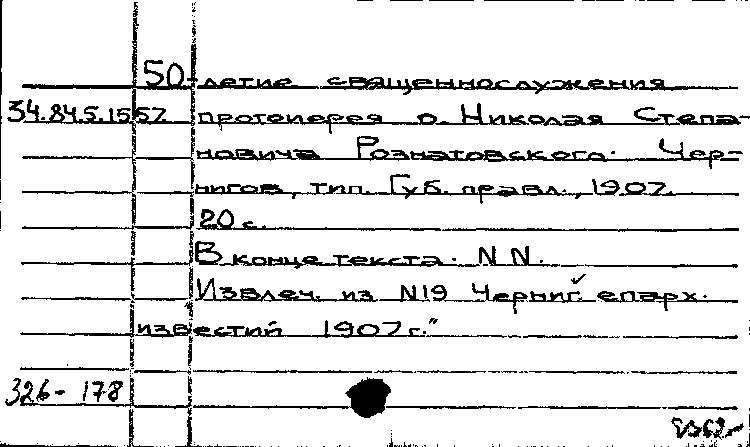 50-летие священнослужения
34.84.5.1557 протоиерея о. Николая Степа-
новича Рознатовского. Чер-
нигов, тип. Губ. правл., 1907.
20 с.
В конце текста: N N.
Извлеч. из N19 Черниг. епарх.
известий 1907 г."
326-178